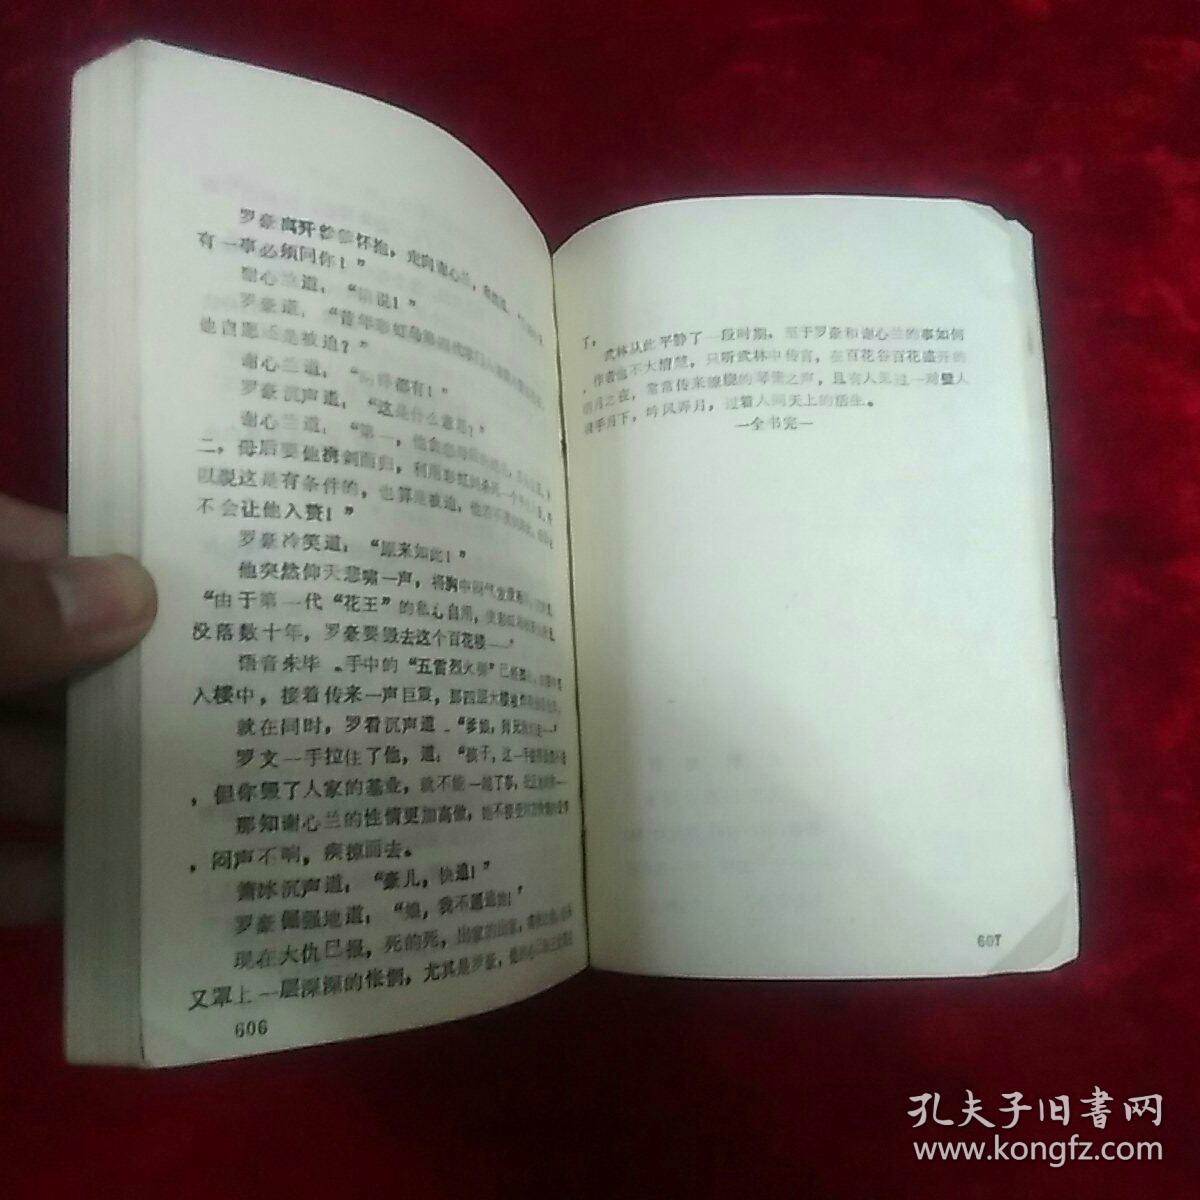 罗豪离开爹爹怀抱，走向谢心兰，
有一事必须问你！”
谢心兰道：“请说！”
罗豪道：“昔年彩虹岛第四代掌门人
他自愿还是被迫？”
谢心兰道：“两样都有！”
罗豪沉声道：“这是什么意思！”
谢心兰道：“第一，他贪恋母后的
二，母后要他携剑而归，利用彩虹剑杀死一个
以说这是有条件的，也算是被迫，他若不
不会让他入赘！”
罗豪冷笑道：“原来如此！”
他突然仰天悲啸一声，将胸中闷气发泄
“由于第一代“花王”的私心自用，使彩虹
没落数十年，罗豪要毁去这个百花楼——’
语音未毕 。手中的“五雷烈火弹”已
入楼中，接着传来一声巨震，那四层大楼被
就在同时，罗看沉声道 “爹娘，
罗文一手拉住了他，道：“孩子，这一
，但你毁了人家的基业，就不能一她了事，
那知谢心兰的性情更加高傲，她不接受
，闷声不响，疾掠而去。
萧冰沉声道：“豪儿，快追！”
罗豪倔强地道：“娘，我不愿追她！’
现在大仇已报，死的死，出家的出家，
又罩上一层深深的怅惘，尤其是罗豪，他
606
了。
武林从此平静了一段时期，至于罗豪和谢心兰的事如何
，作者也不大清楚，只听武林中传言，在百花谷百花盛开的
明月之夜，常常传来嘹绕的琴笙之声，且有人见过一对璧人
携手月下，吟风弄月，过着人间天上的活生。
—全书完—
607
孔夫子旧書网
www.kongfz.com